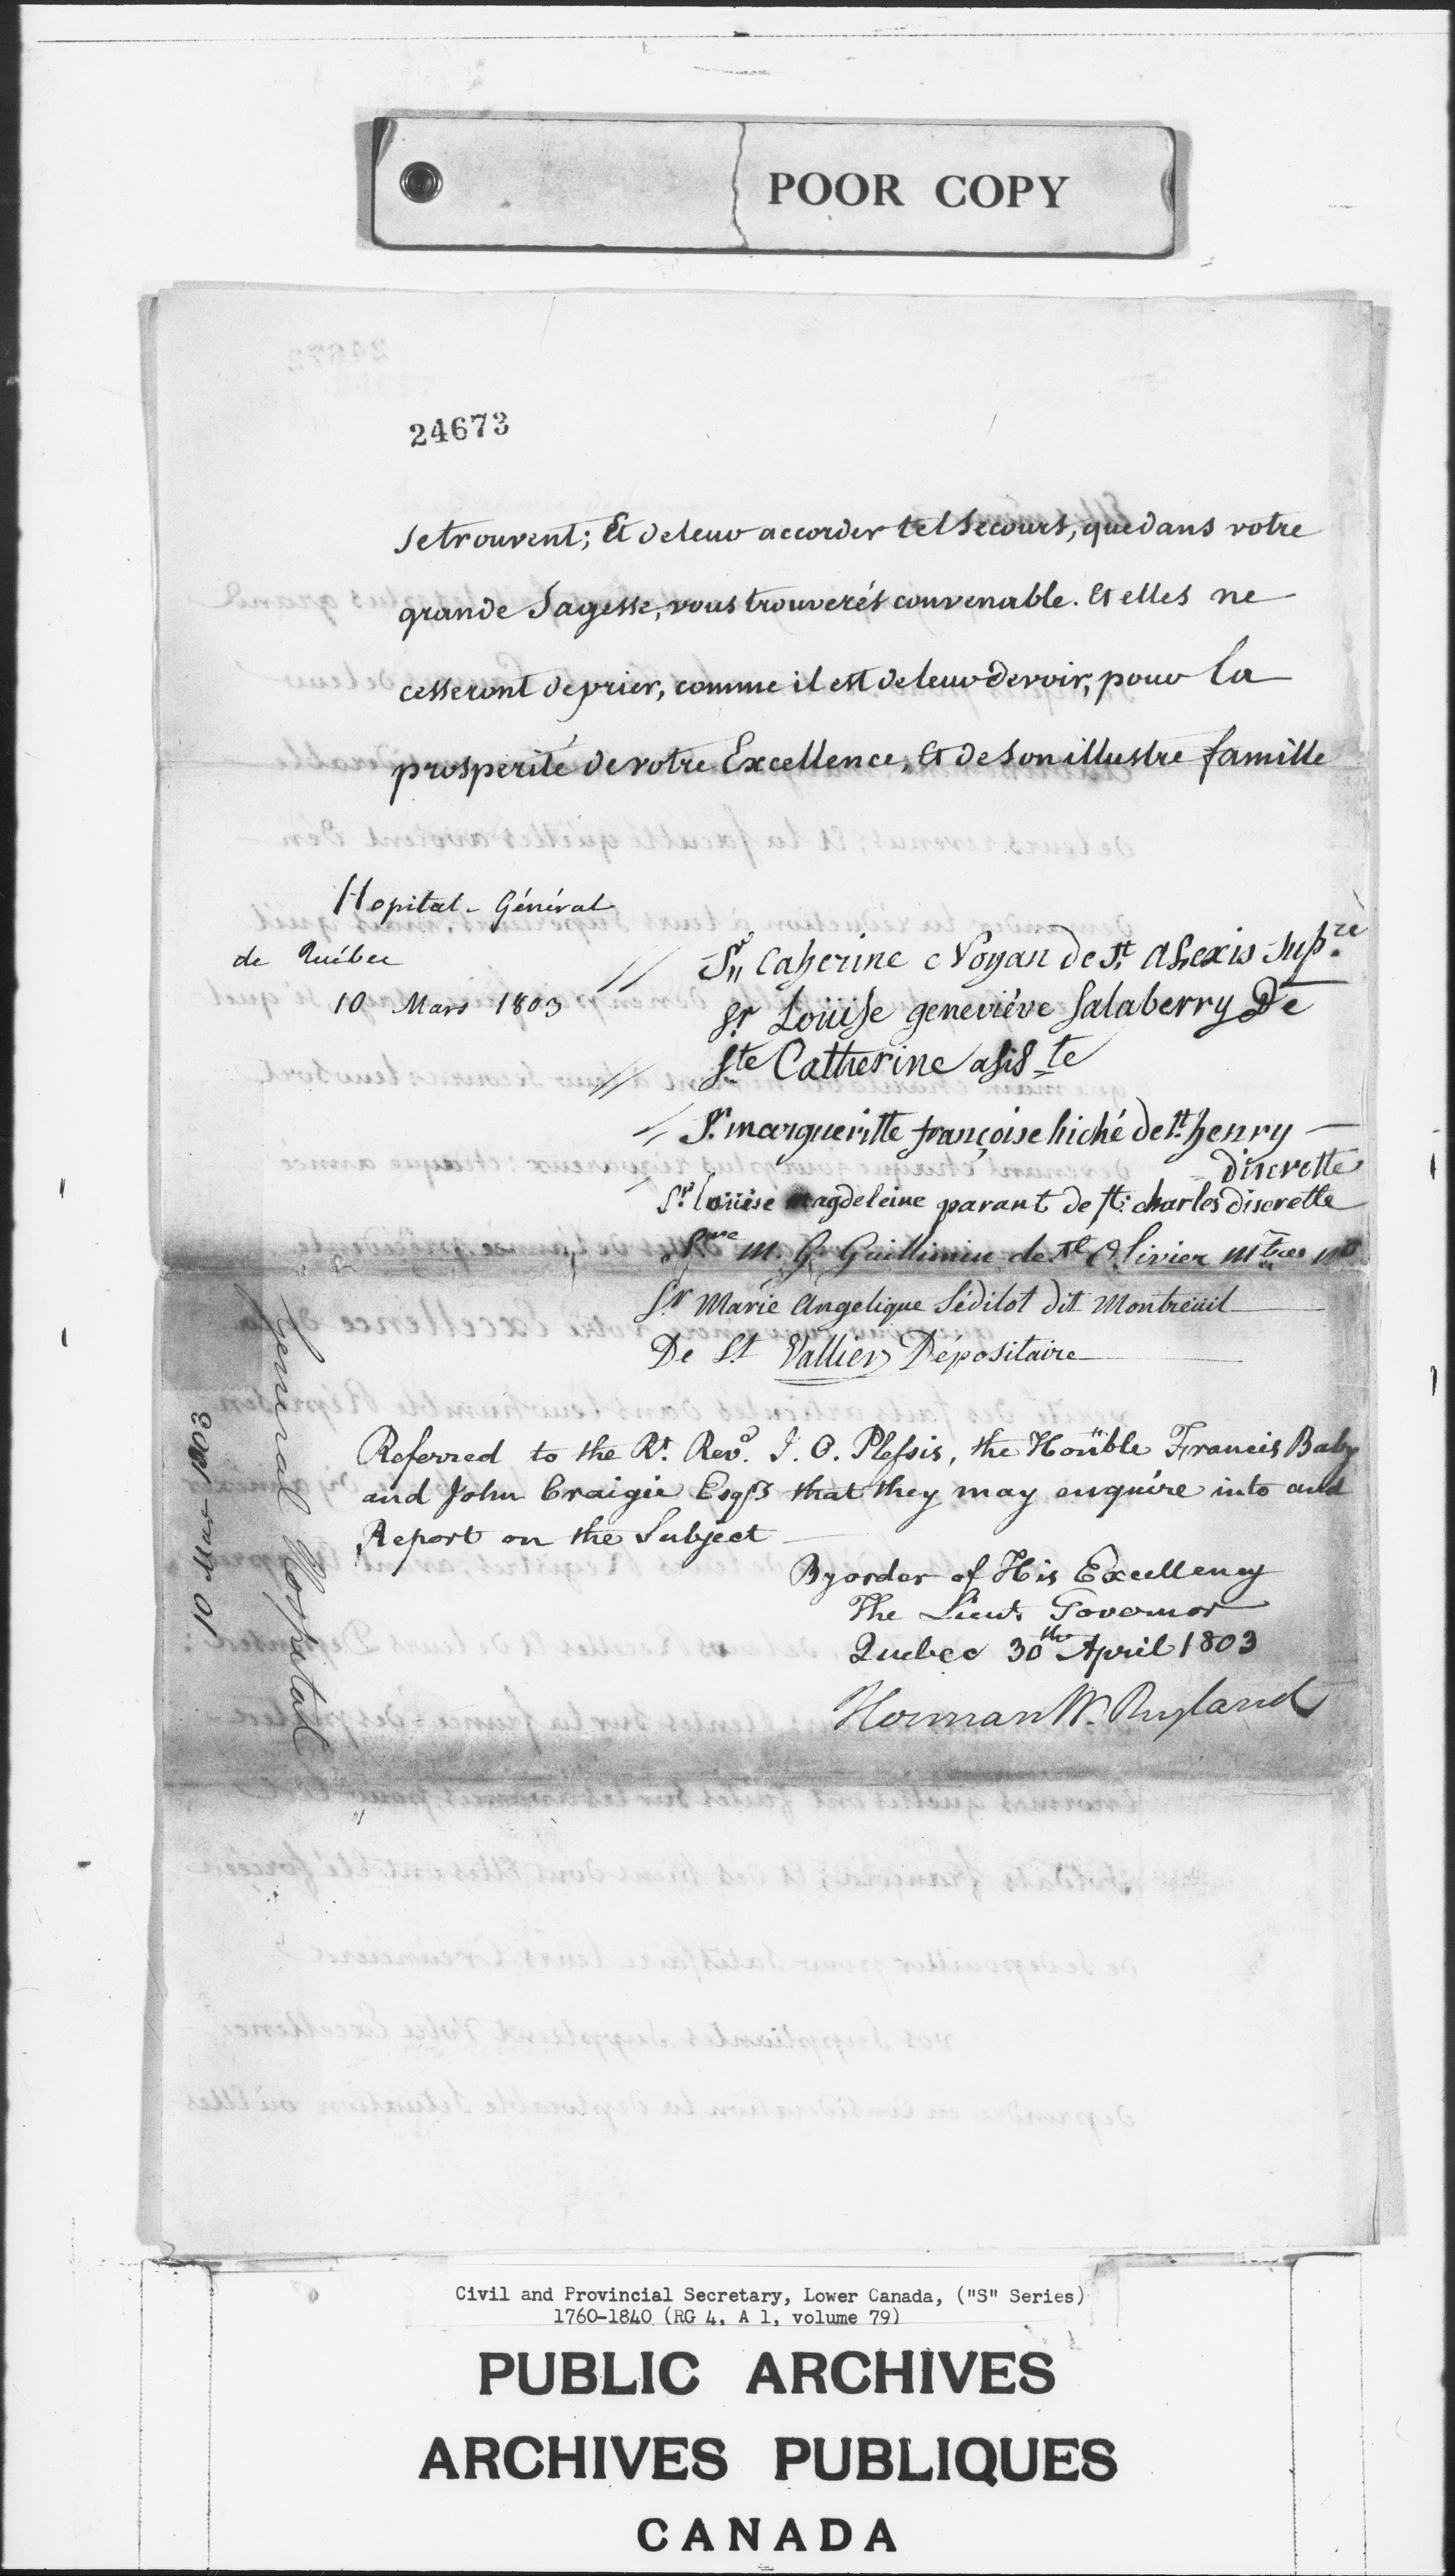 POOR COPY
24673
se trouvent; Et de leur accorder tel Secours, que dans votre
grande Sagesse, vous trouverés convenable. Et elles ne
cesseront de prier, comme il est de leur Devoir, pour la
prosperité de votre Excellence, Et de Son illustre famille
Hopital-Général
de Québec
10 Mars 1803
Sr. Caherine Noyan de St. Alexis Supre.
Sr Loüise geneviéve Salaberry De
Ste Catherine asiste
Sr. margueritte françoise hiché de St. henry
discrette
Sr. loüise magdeleine parant de St. charles discrette
M. G Guillimin de St Olivier
Sr Marie Angelique Sédilot dit Montreüil
De St Vallier Dépositaire
Referred to the Rt. Revd. J. O. Plessis, the Honble Francis Baby
and John Craigie Esqrs that they may enquire into and
Report on the Subject
By order of His Excellency
The Lieut. Governor
Quebec 30th April 1803
Herman W. Ryland
General Hospital
10 Mar 1803
Civil and Provincial Secretary, Lower Canada, ("S" Series)
1760-1840 (RG 4, A 1, volume 79)
PUBLIC ARCHIVES
ARCHIVES PUBLIQUES
CANADA